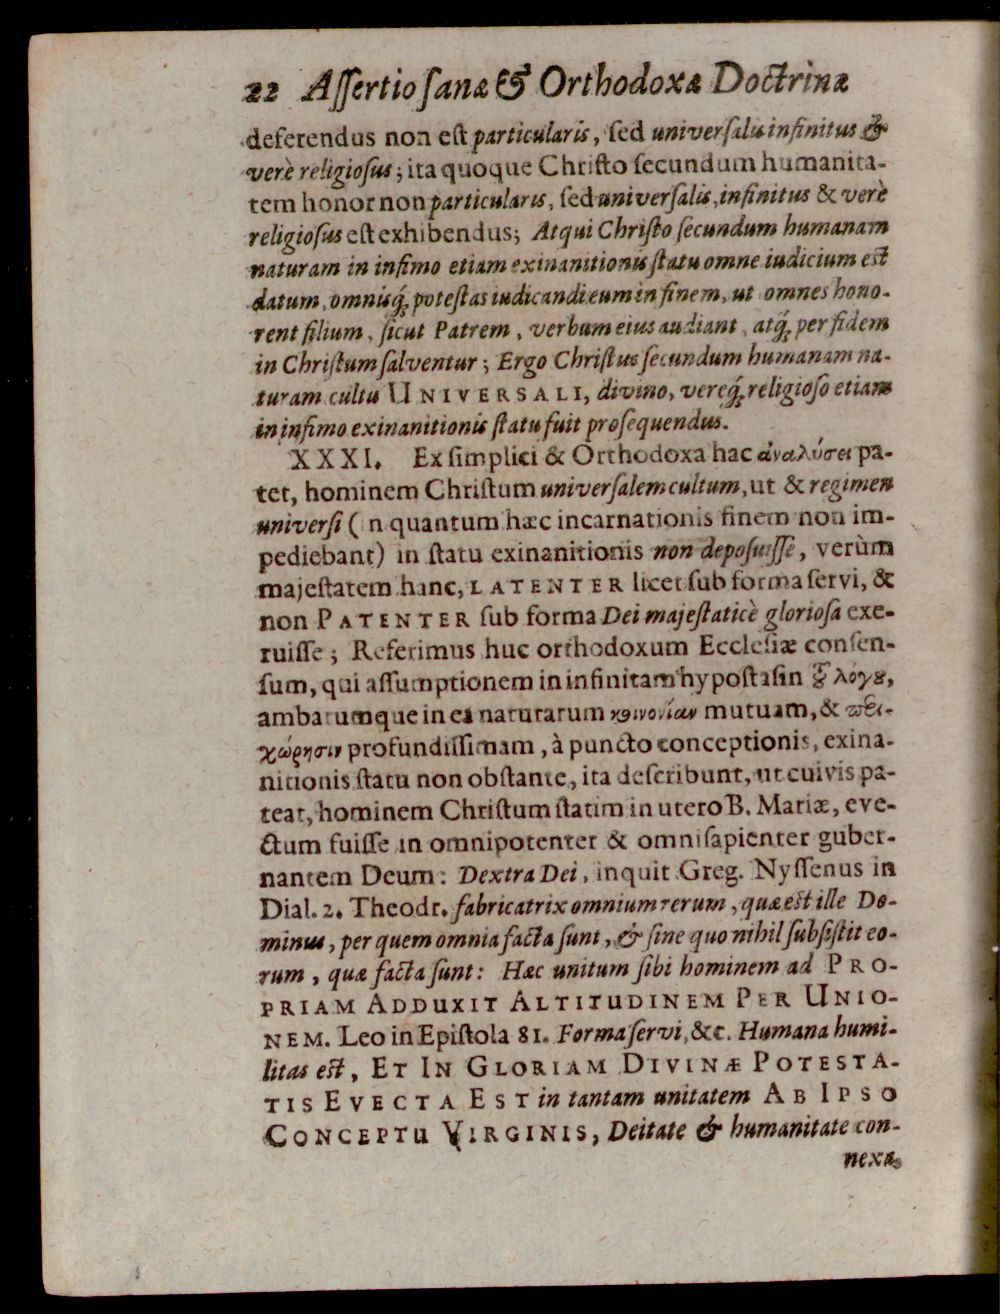 22 Assertio sanæ & Orthodoxæ Doctrinæ
deferendus non est particularis, sed universalis infinitus &
verè religiosus; ita quoque Christo secundum humanita-
tem honor non particularis, sed universalis, infinitus & verè
religiosus est exhibendus; Atqui Christo secundum humanam
naturam in infimo etiam exinanitionis statu omne iudicium est
datum, omnisq́; potestas iudicandi eum in finem, ut omnes hono-
rent filium, sicut Patrem, verbum eius audiant, atq́; per fidem
in Christum salventur; Ergo Christus secundum humanam na-
turam cultu UNIVERSALI, divino, vereq́; religioso etiam
in infimo exinanitionis statu fuit prosequendus.
XXXI. Ex simplici & Orthodoxa hac ἀναλύσει pa-
tet, hominem Christum universalem cultum, ut & regimen
universi (in quantum hæc incarnationis finem non im-
pediebant) in statu exinanitionis non deposuisse, verùm
majestatem hanc, LATENTER licet sub forma servi, &
non PATENTER sub forma Dei majestaticè gloriosa exe-
ruisse; Referimus huc orthodoxum Ecclesiæ consen-
sum, qui assumptionem in infinitam hypostasin τȣ͂ λόγȣ,
ambarumque in ea naturarum κοινονίαν mutuam, & περι-
χώρησιν profundissimam, à puncto conceptionis, exina-
nitionis statu non obstante, ita describunt, ut cuivis pa-
teat, hominem Christum statim in utero B. Mariæ, eve-
ctum fuisse in omnipotenter & omnisapienter guber-
nantem Deum: Dextra Dei, inquit Greg. Nyssenus in
Dial. 2. Theodr. fabricatrix omnium rerum, quæ est ille Do-
minus, per quem omnia facta sunt, & sine quo nihil subsistit eo-
rum, quæ facta sunt: Hæc unitum sibi hominem ad PRO-
PRIAM ADDUXIT ALTITUDINEM PER UNIO-
NEM. Leo in Epistola 81. Forma servi, &c. Humana humi-
litas est, ET IN GLORIAM DIVINÆ POTESTA-
TIS EVECTA EST in tantam unitatem AB IPSO
CONCEPTU VIRGINIS, Deitate & humanitate con-
nexa.